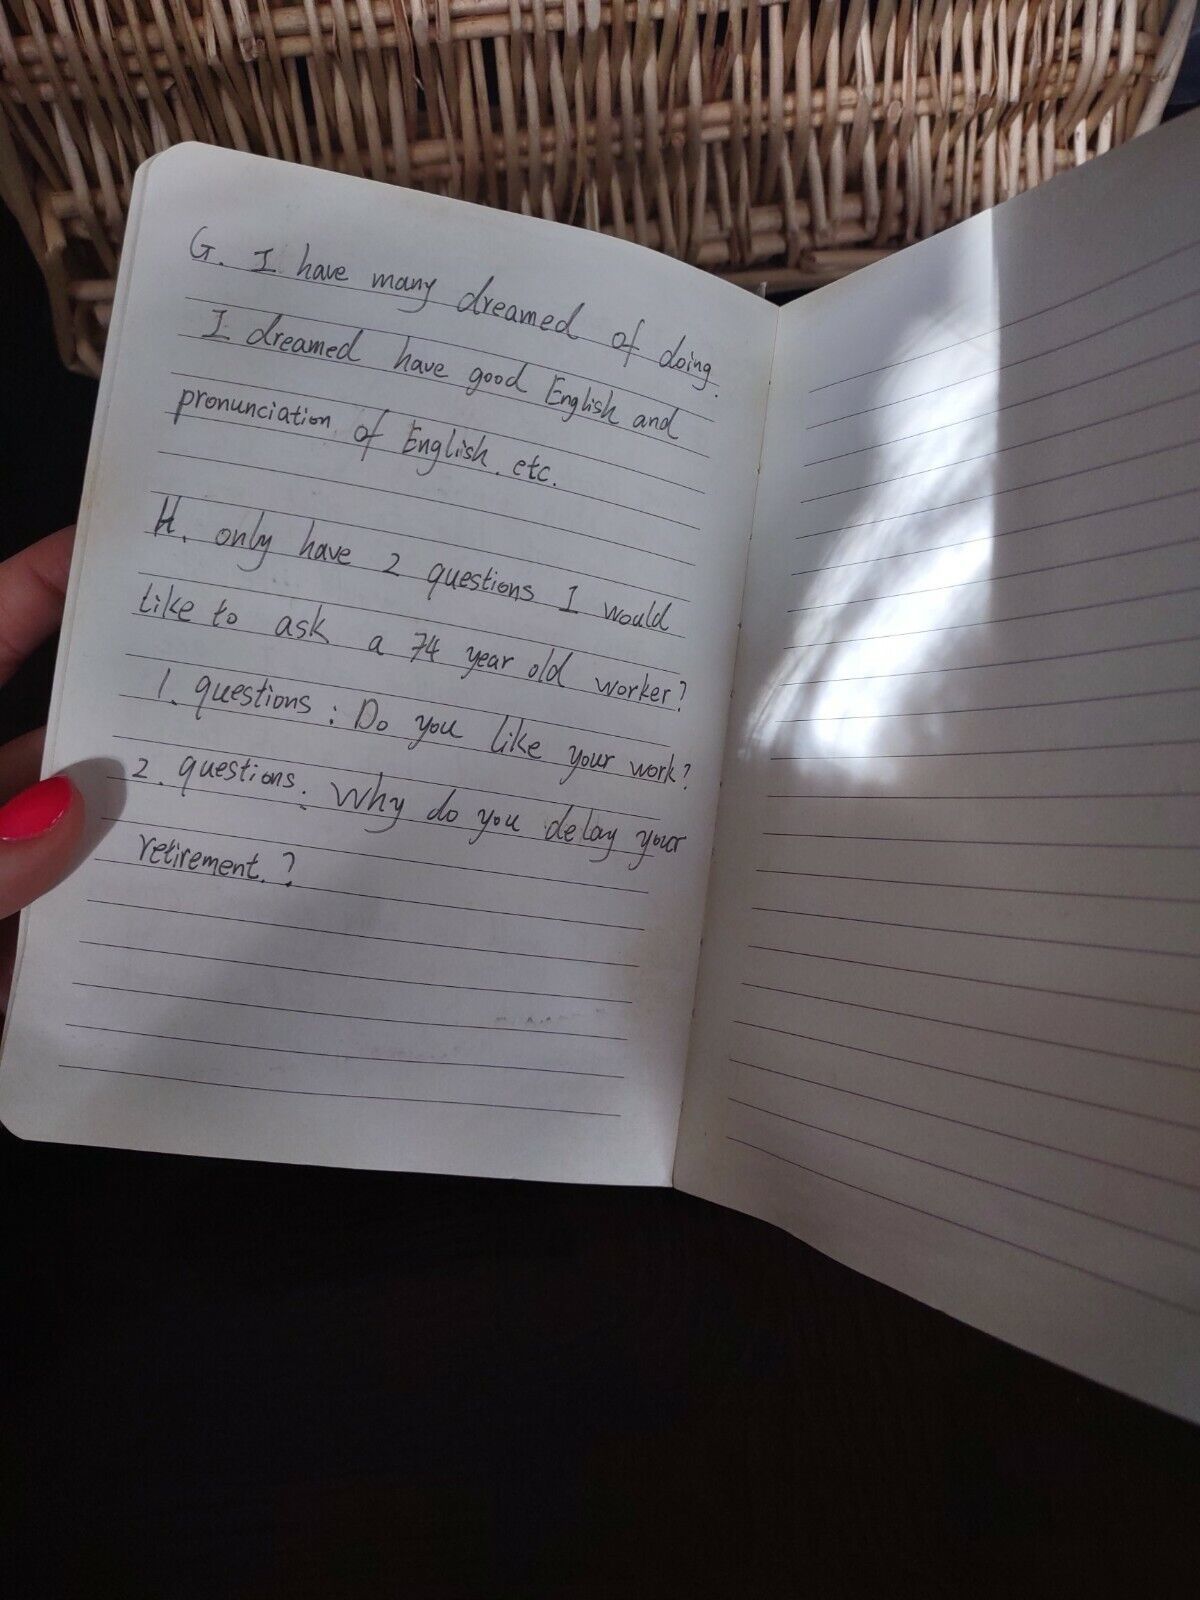 G. I have many dreamed of doing.
I dreamed have good English and
pronunciation of English. etc.
H. only have 2 questions I would
like to ask a 74 year old worker?
1. questions: Do you like your work?
2. questions: Why do you delay your
retirement.?